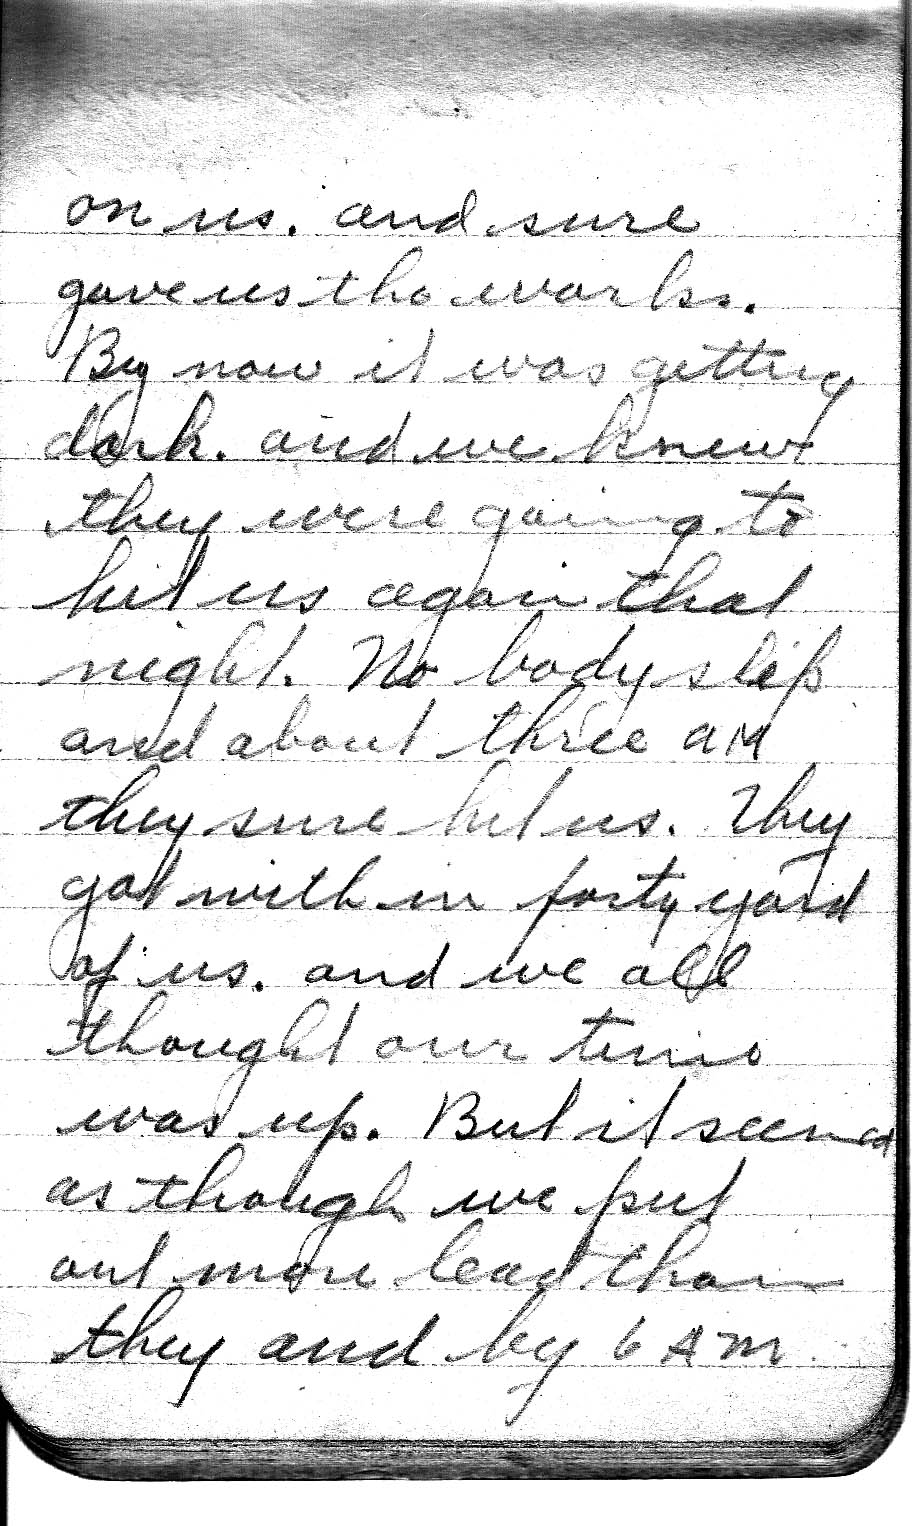 on us. and sure
gave us the works.
By now it was getting
dark. and we knew
they were going to
hit us again that
night. No body slep
and about three AM
they sure hit us. They
got with in forty yard
of us. and we all
thought our time
was up. But it seemed
as though we put
out more lead than
they and by 6 AM